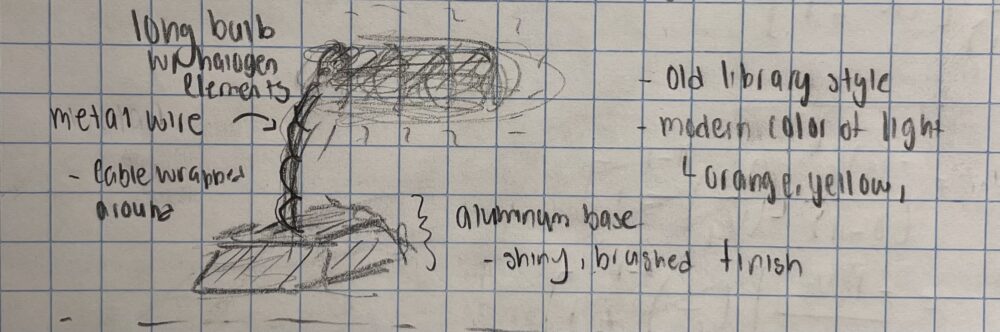 long bulb
w/ halogen
elements
metal wire
- cable wrapped
around
- old library style
- modern color of light
orange, yellow,
alumnum base
- shiny, brushed finish